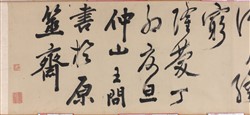 窮
隆慶丁
卯夏旦
仲山王問
書於原
筮齋